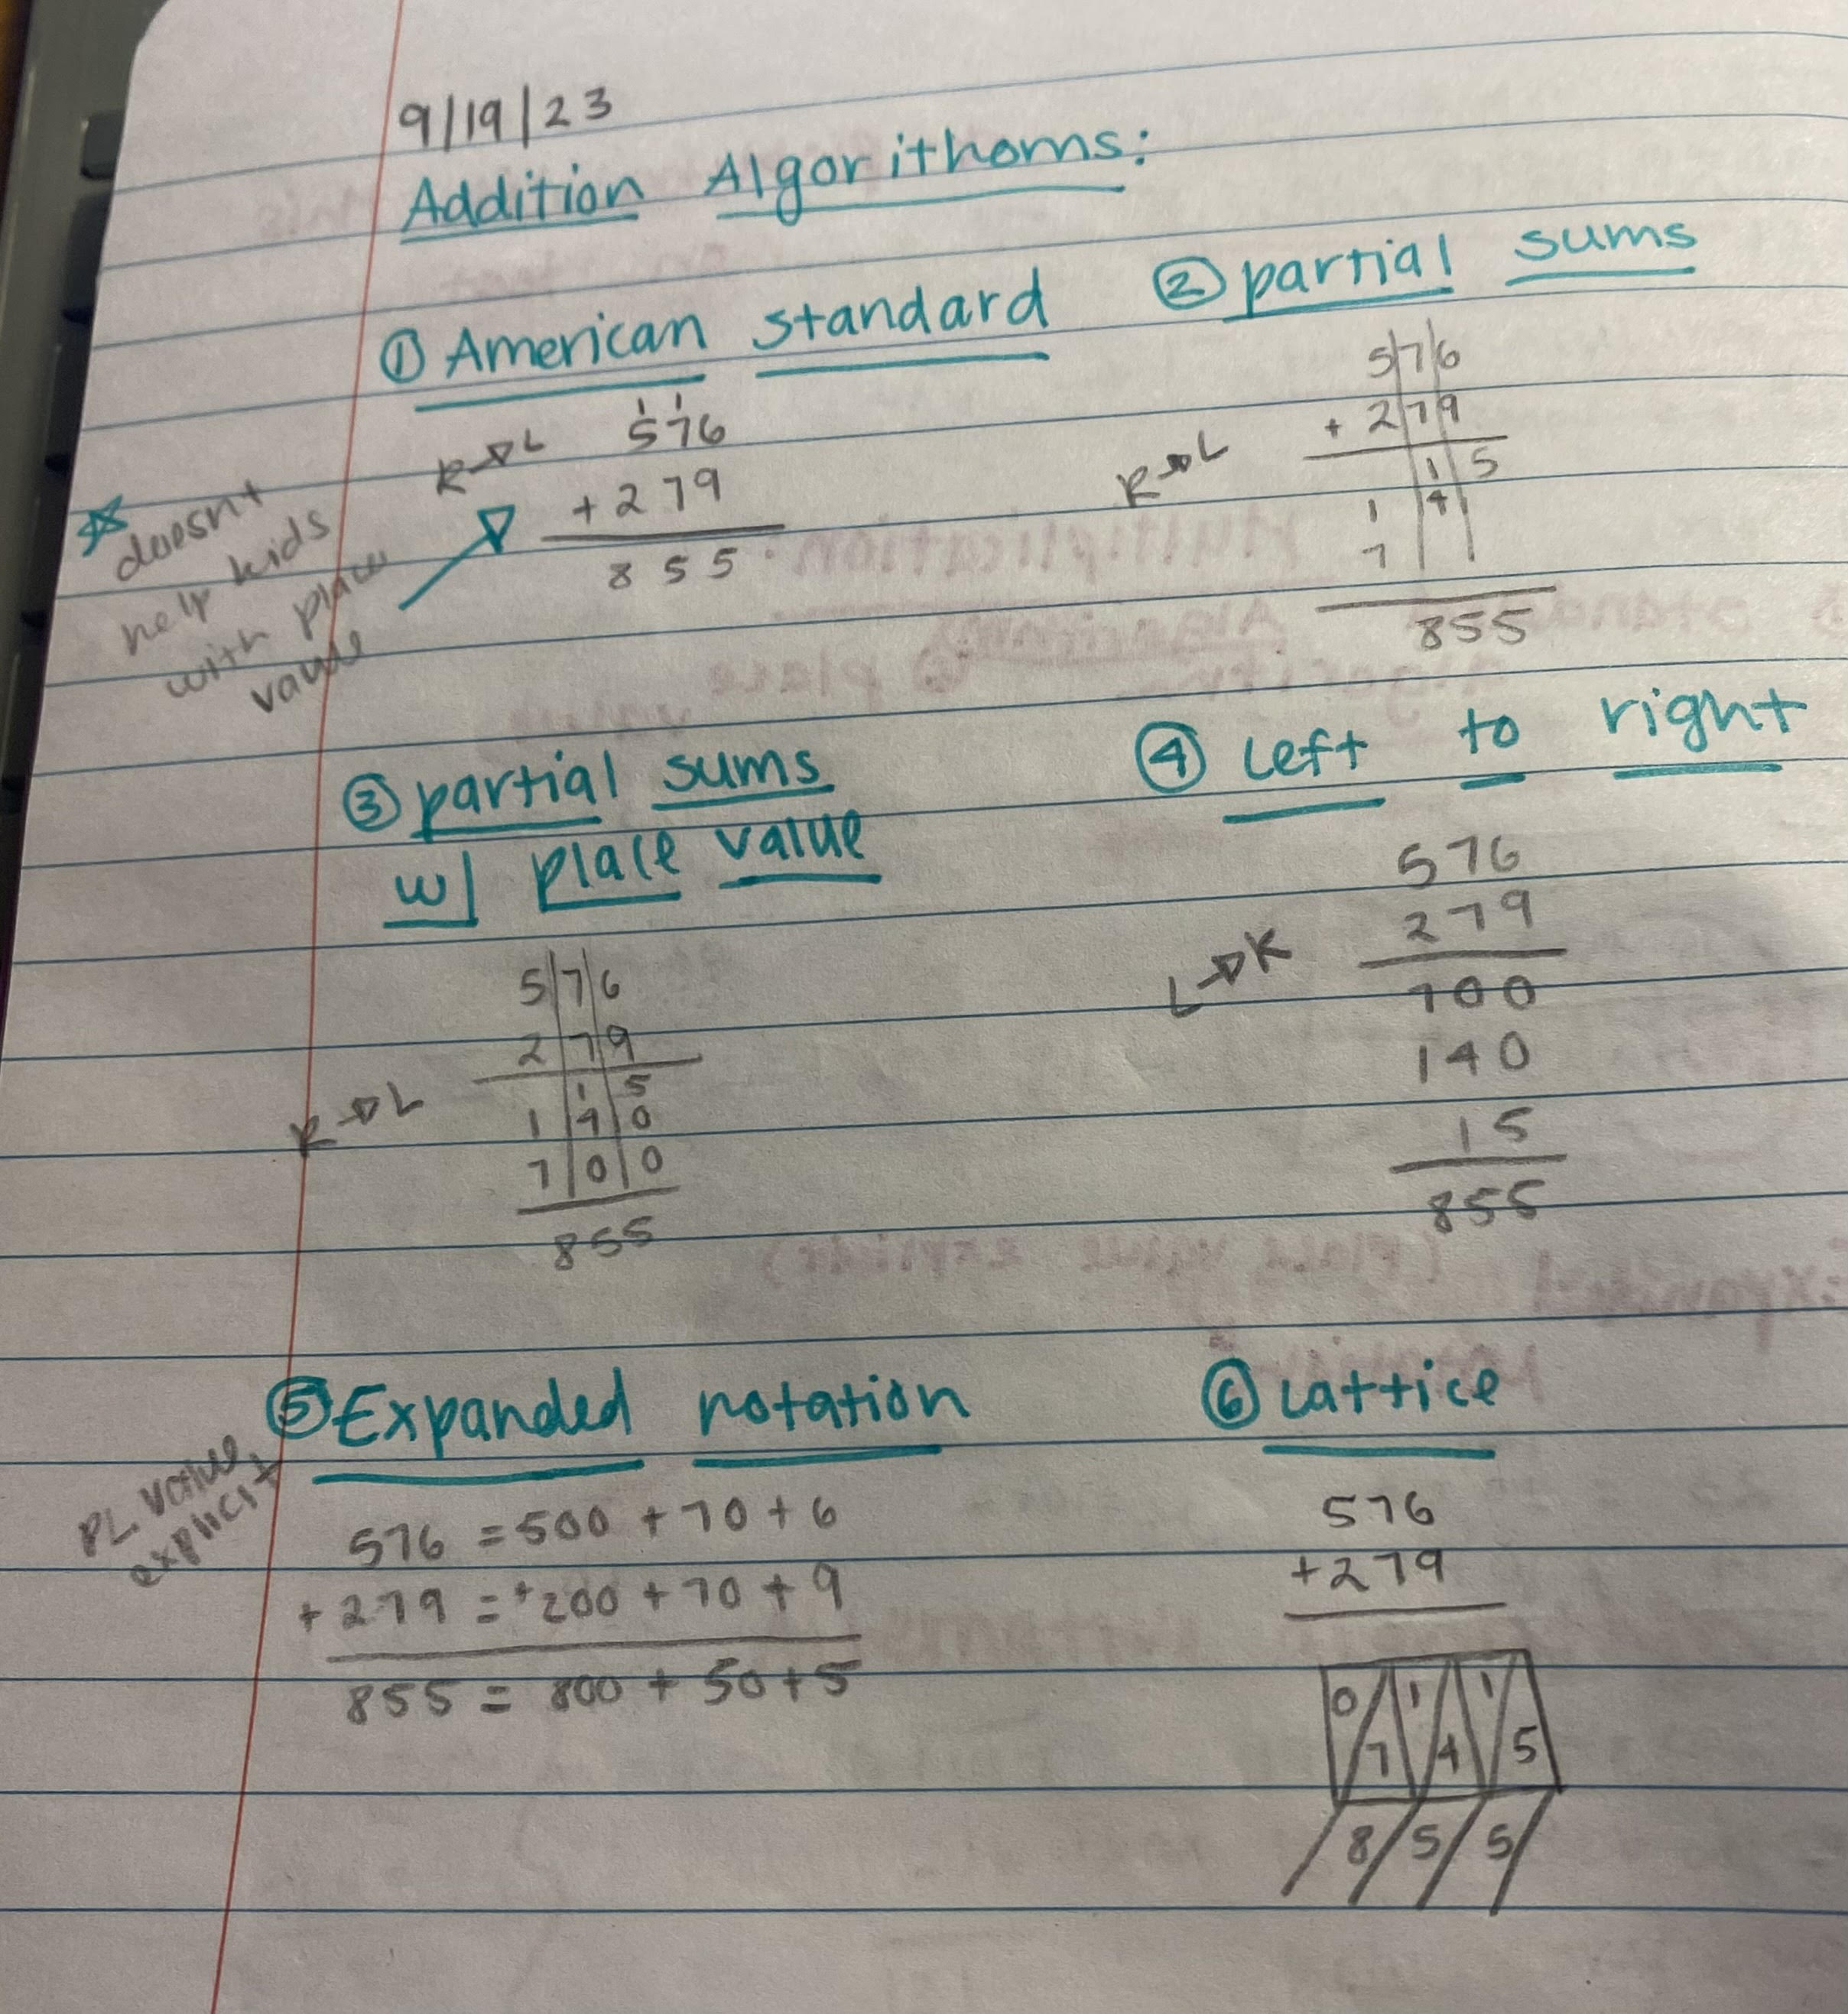 9/19/23
Addition Algorithoms:
① American standard
R→L
1 1
576
+279
855
☆ doesn't
help kids
with place
value
② partial sums
R→L
5|7|6
+ 2|7|9
1 5
1 4
7
855
③ partial sums
w/ place value
R→L
5|7|6
2|7|9
1 5
1 4 0
7 0 0
855
④ Left to right
L→R
576
279
700
140
15
855
⑤ Expanded notation
PL value
explicit
576 = 500 + 70 + 6
+ 279 = +200 + 70 + 9
855 = 800 + 50 + 5
⑥ Lattice
576
+279
0/7 1/4 1/5
/8/5/5/